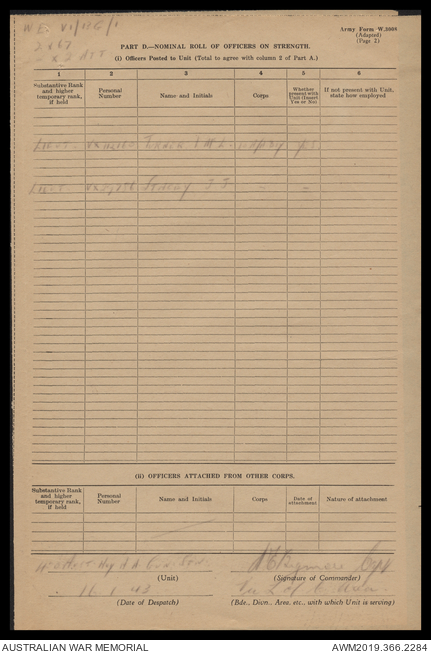 WE V1/136/1
2 x 67
Army Form W.3008
(Adapted)
(Page 2)
PART D.—NOMINAL ROLL OF OFFICERS ON STRENGTH.
(i) Officers Posted to Unit (Total to agree with column 2 of Part A.)
1 2 3 4 5 6
Substantive Rank and higher temporary rank, if held
Personal Number
Name and Initials
Corps
Whether present with Unit (Insert Yes or No)
If not present with Unit, state how employed
Lieut
Lieut
(ii) OFFICERS ATTACHED FROM OTHER CORPS.
Substantive Rank and higher temporary rank, if held
Personal Number
Name and Initials
Corps
Date of attachment
Nature of attachment
(Unit)
(Signature of Commander)
16.1.43
(Date of Despatch)
(Bde., Divn., Area, etc., with which Unit is serving)
AUSTRALIAN WAR MEMORIAL
AWM2019.366.2284